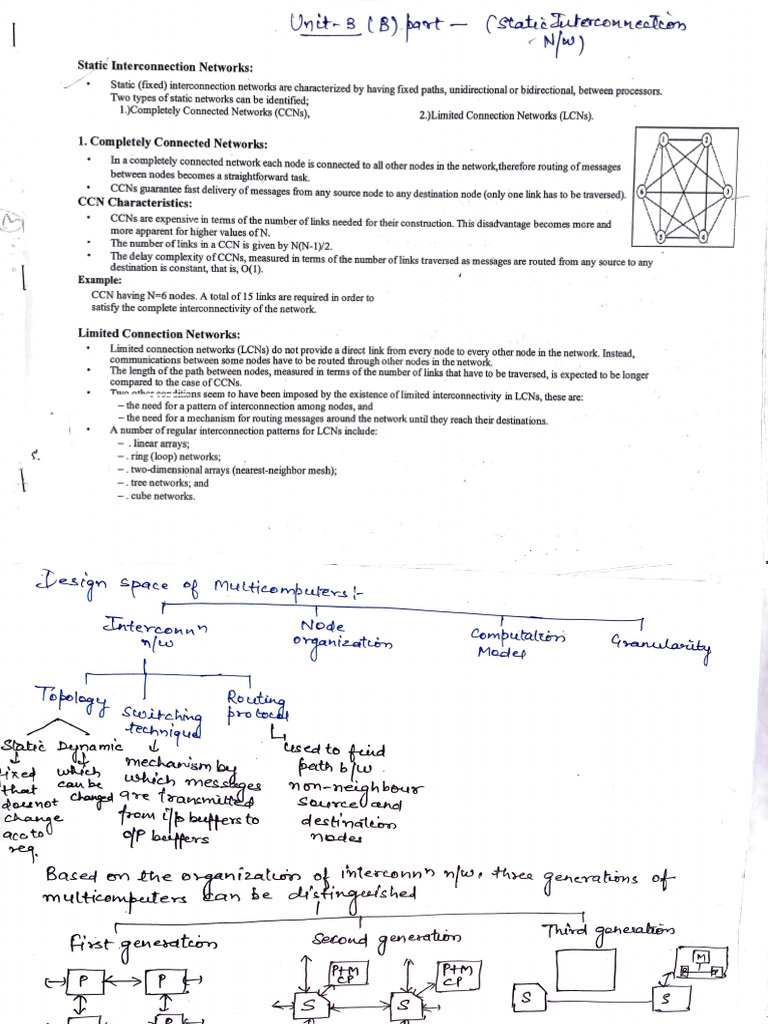 Unit-3 (B) part — (Static Interconnection
N/w)
Static Interconnection Networks:
• Static (fixed) interconnection networks are characterized by having fixed paths, unidirectional or bidirectional, between processors.
Two types of static networks can be identified;
1.)Completely Connected Networks (CCNs), 2.)Limited Connection Networks (LCNs).
1. Completely Connected Networks:
• In a completely connected network each node is connected to all other nodes in the network,therefore routing of messages
between nodes becomes a straightforward task.
• CCNs guarantee fast delivery of messages from any source node to any destination node (only one link has to be traversed).
CCN Characteristics:
• CCNs are expensive in terms of the number of links needed for their construction. This disadvantage becomes more and
more apparent for higher values of N.
• The number of links in a CCN is given by N(N-1)/2.
• The delay complexity of CCNs, measured in terms of the number of links traversed as messages are routed from any source to any
destination is constant, that is, O(1).
Example:
CCN having N=6 nodes. A total of 15 links are required in order to
satisfy the complete interconnectivity of the network.
1 2
6 3
5 4
Limited Connection Networks:
• Limited connection networks (LCNs) do not provide a direct link from every node to every other node in the network. Instead,
communications between some nodes have to be routed through other nodes in the network.
• The length of the path between nodes, measured in terms of the number of links that have to be traversed, is expected to be longer
compared to the case of CCNs.
• Two other conditions seem to have been imposed by the existence of limited interconnectivity in LCNs, these are:
– the need for a pattern of interconnection among nodes, and
– the need for a mechanism for routing messages around the network until they reach their destinations.
• A number of regular interconnection patterns for LCNs include:
– . linear arrays;
– . ring (loop) networks;
– . two-dimensional arrays (nearest-neighbor mesh);
– . tree networks; and
– . cube networks.
Design space of Multicomputers:-
Interconnⁿ
n/w
Node
organization
Computation
Model
Granularity
Topology
Switching
technique
Routing
protocol
Static Dynamic
fixed
that
does not
change
acc to
req.
which
can be
changed
mechanism by
which messages
are transmitted
from i/p buffers to
o/p buffers
used to find
path b/w
non-neighbour
source and
destination
nodes
Based on the organization of interconnⁿ n/w, three generations of
multicomputers can be distinguished
First generation
Second generation
Third generation
P P
P
P+M
CP
P+M
CP
S S
S
M
S